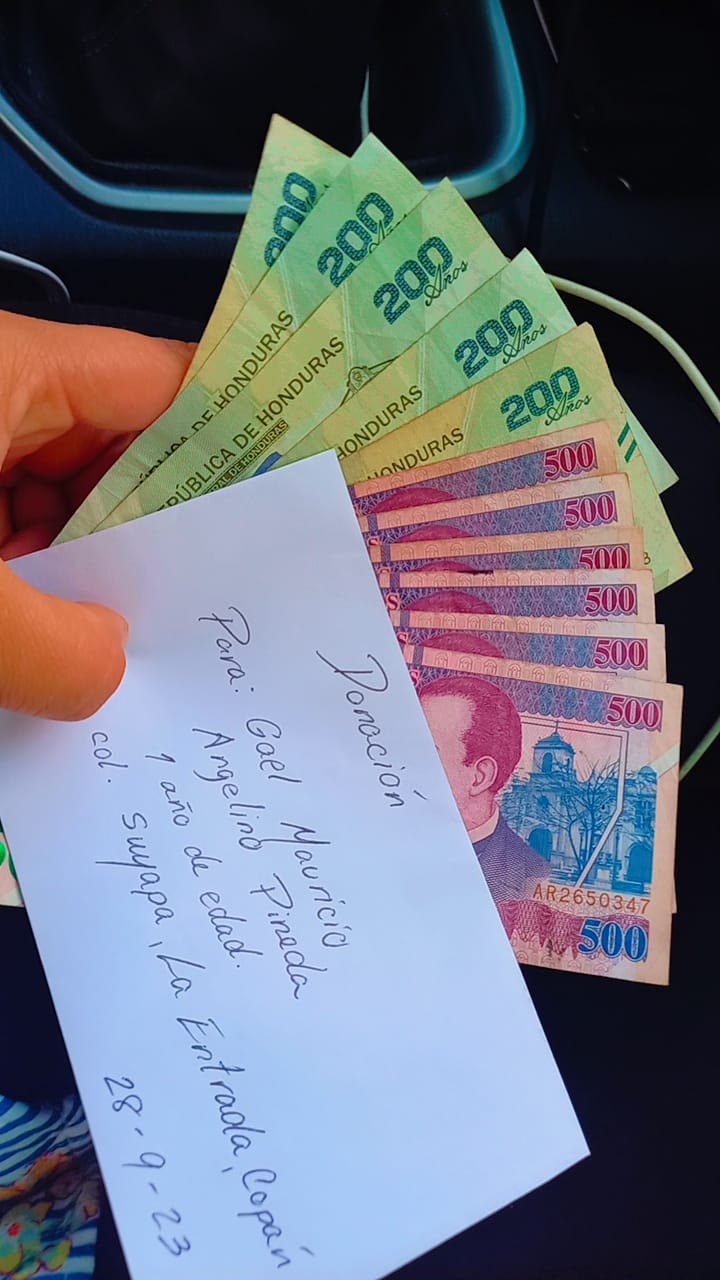 200
200
Años
200
Años
200
Años
200
Años
REPÚBLICA DE HONDURAS
HONDURAS
HONDURAS
500
500
500
500
500
500
AR2650347
500
Donación
Para: Gael Mauricio
Angelino Pineda
1 año de edad.
col. Suyapa, La Entrada, Copán
28-9-23